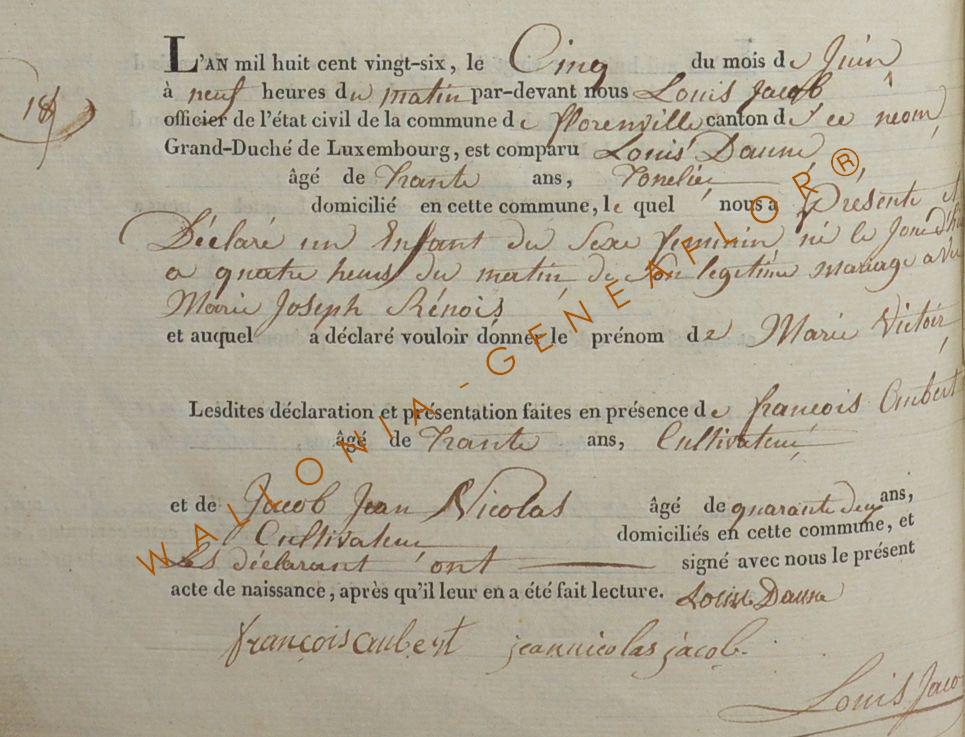 18
L'AN mil huit cent vingt-six, le Cinq du mois de Juin
à neuf heures du matin par-devant nous Louis Jacob
officier de l'état civil de la commune de florenville canton de ce nom
Grand-Duché de Luxembourg, est comparu Louis Daune
âgé de trante ans, Tonelier
domicilié en cette commune, le quel nous a Présenté et
Déclaré un Enfant du Sexe feminin né le Jour
a quatre heurs du matin de Son legetime mariage avec
Marie Joseph Rénois
et auquel a déclaré vouloir donner le prénom de Marie Victoir
Lesdites déclaration et présentation faites en présence de françois Aubert
âgé de trante ans, Cultivateur
et de Jacob Jean Nicolas âgé de quarante deux ans,
Cultivateur domiciliés en cette commune, et
Les déclarant ont signé avec nous le présent
acte de naissance, après qu'il leur en a été fait lecture. Louis Daune
françois aubert jean nicolas jacob.
Louis Jaco
WALLONIA-GENEAFLOR®